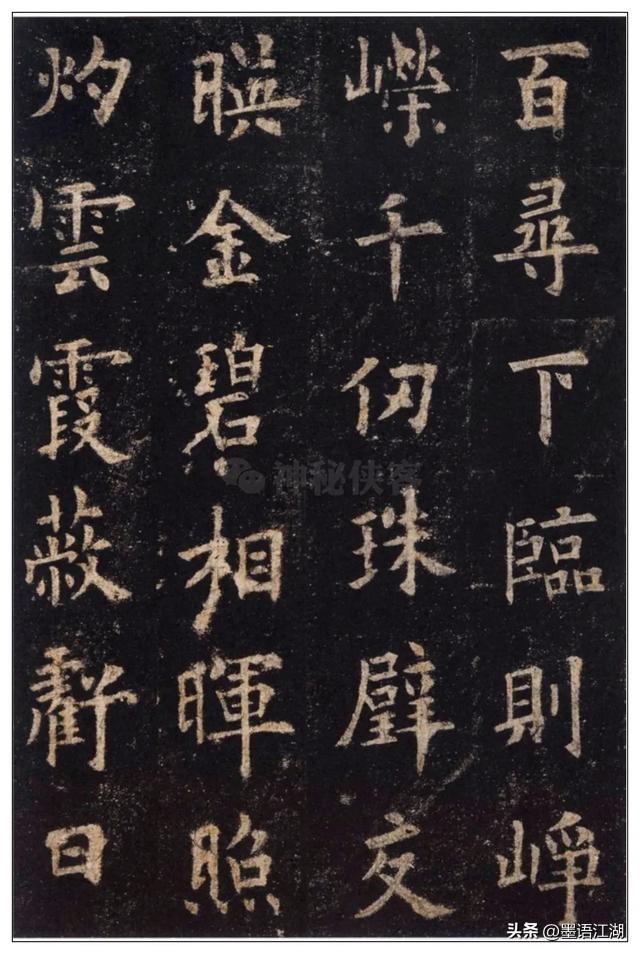 百尋下臨則崢
嶸千仞珠璧交
暎金碧相暉照
灼雲霞蔽虧日
神秘侠客
头条 @墨语江湖